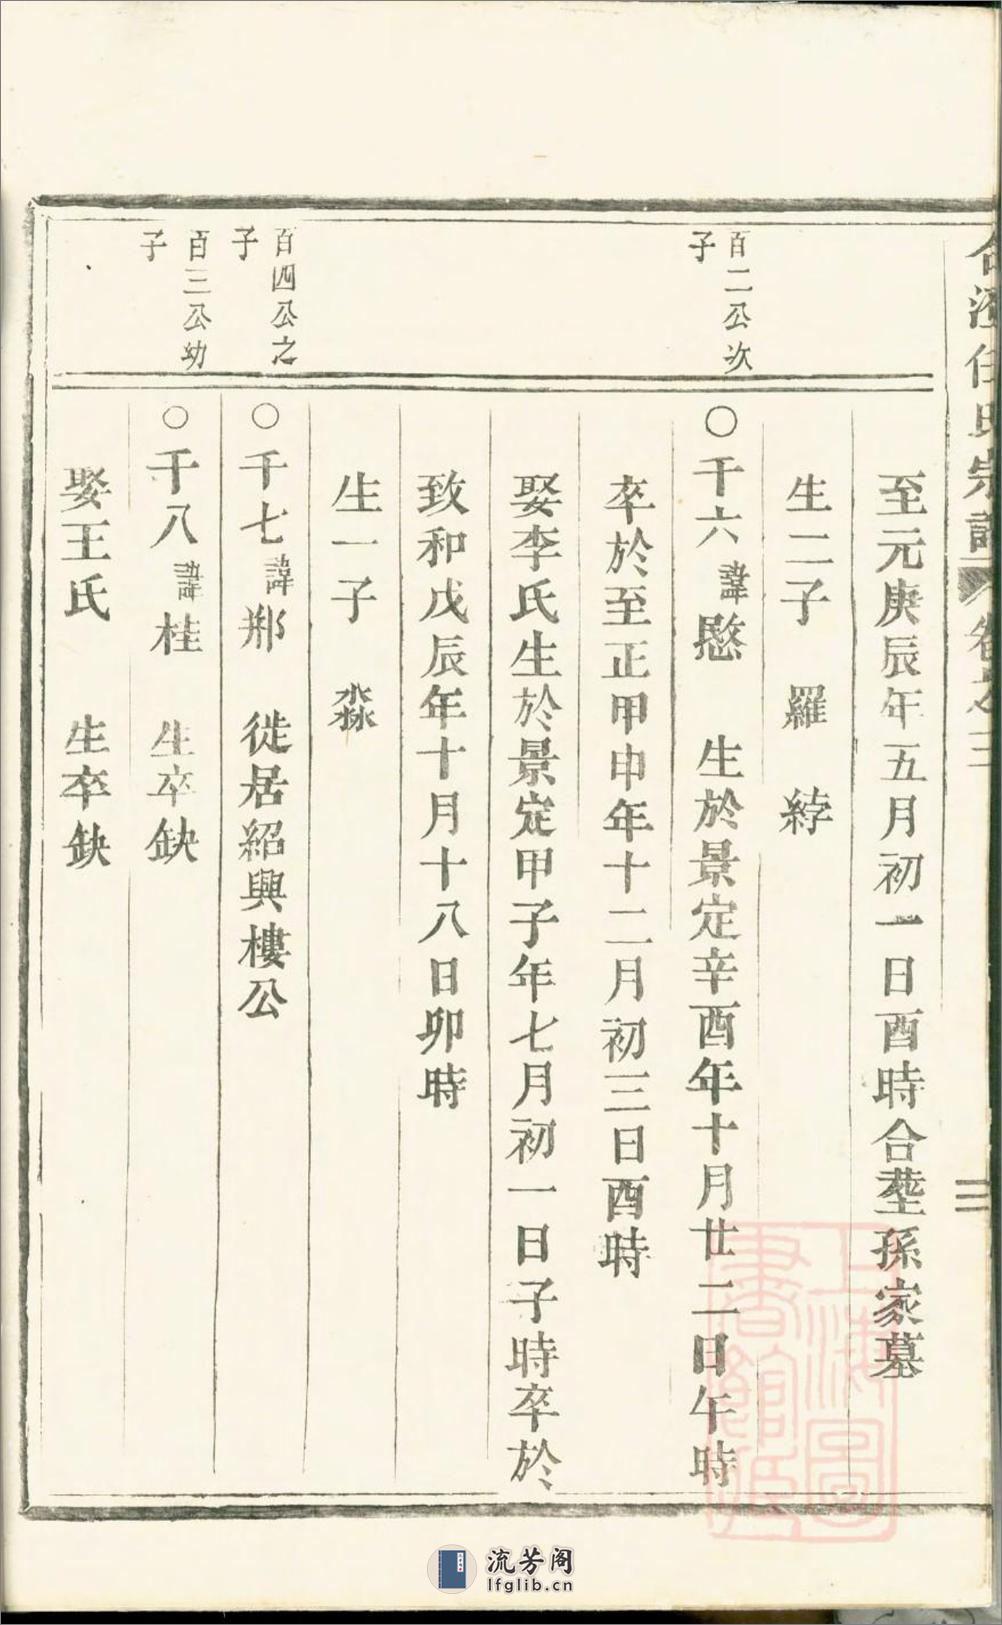 任氏宗譜 卷之三
三
至元庚辰年五月初一日酉時合塟孫家墓
生二子 羅 綍
百二公次子
○千六諱愍 生於景定辛酉年十月廿二日午時
卒於至正甲申年十二月初三日酉時
娶李氏生於景定甲子年七月初一日子時卒於
致和戊辰年十月十八日卯時
生一子 淼
百四公之子
○千七諱邦 徙居紹興樓公
百三公幼子
○千八諱桂 生卒缺
娶王氏 生卒缺
上海圖書館藏
流芳阁
lfglib.cn